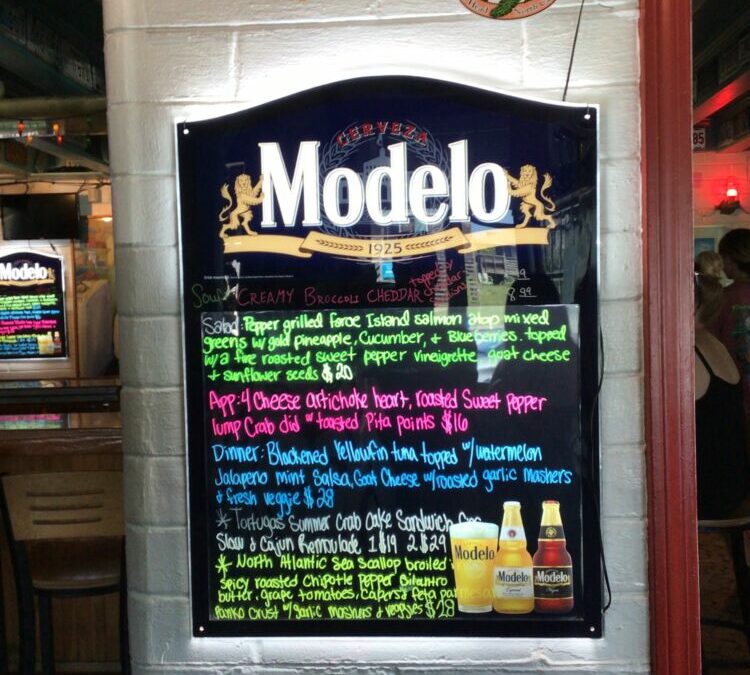 CERVEZA
Modelo
1925
Soup: CREAMY BROCCOLI CHEDDAR topped w/ cheddar
8.99
Salad: Pepper grilled faroe Island salmon atop mixed
greens w/ gold pineapple, Cucumber, & Blueberries. topped
w/ a fire roasted sweet pepper vineigrette goat cheese
+ sunflower seeds $20
App: 4 Cheese artichoke heart, roasted Sweet pepper
lump Crab did w/ toasted Pita points $16
Dinner: Blackened Yellowfin tuna topped w/ watermelon
Jalapeno mint Salsa, Goat Cheese w/ roasted garlic mashers
& fresh veggie $28
* Tortugas Summer Crab Cake Sandwich
Slaw & Cajun Remoulade 1 $19 2 $29
* North Atlantic Sea Scallop broiled
spicy roasted Chipotle pepper Cilantro
butter, grape tomatoes, Capers & feta parmesan
Panko Crust w/ garlic mashers & veggies $28
Modelo
Modelo
Modelo
Modelo